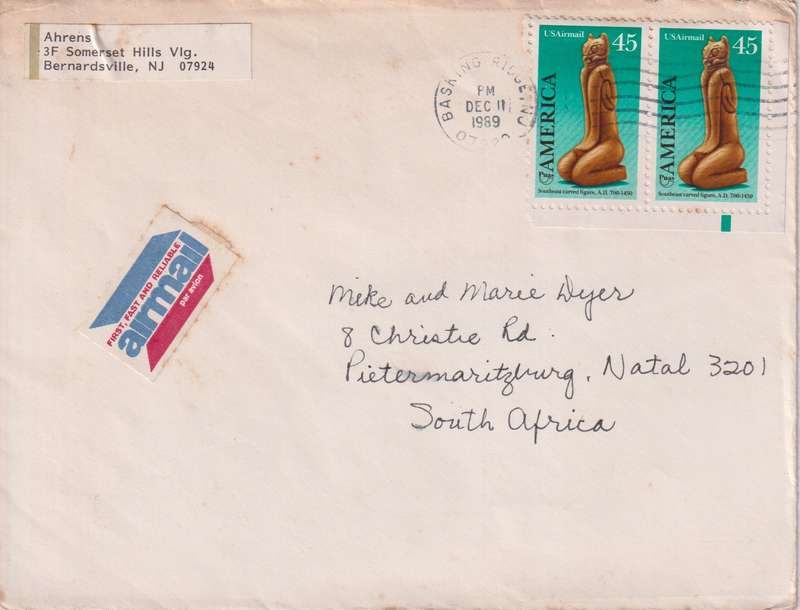 Ahrens
3F Somerset Hills Vlg.
Bernardsville, NJ 07924
BASKING RIDGE, NJ
PM
DEC 11
1989
USAirmail 45
AMERICA
PUAS
Southeast carved figure, A.D. 700-1430
USAirmail 45
AMERICA
PUAS
Southeast carved figure, A.D. 700-1430
FIRST, FAST AND RELIABLE
airmail
par avion
Mike and Marie Dyer
8 Christie Rd.
Pietermaritzburg, Natal 3201
South Africa